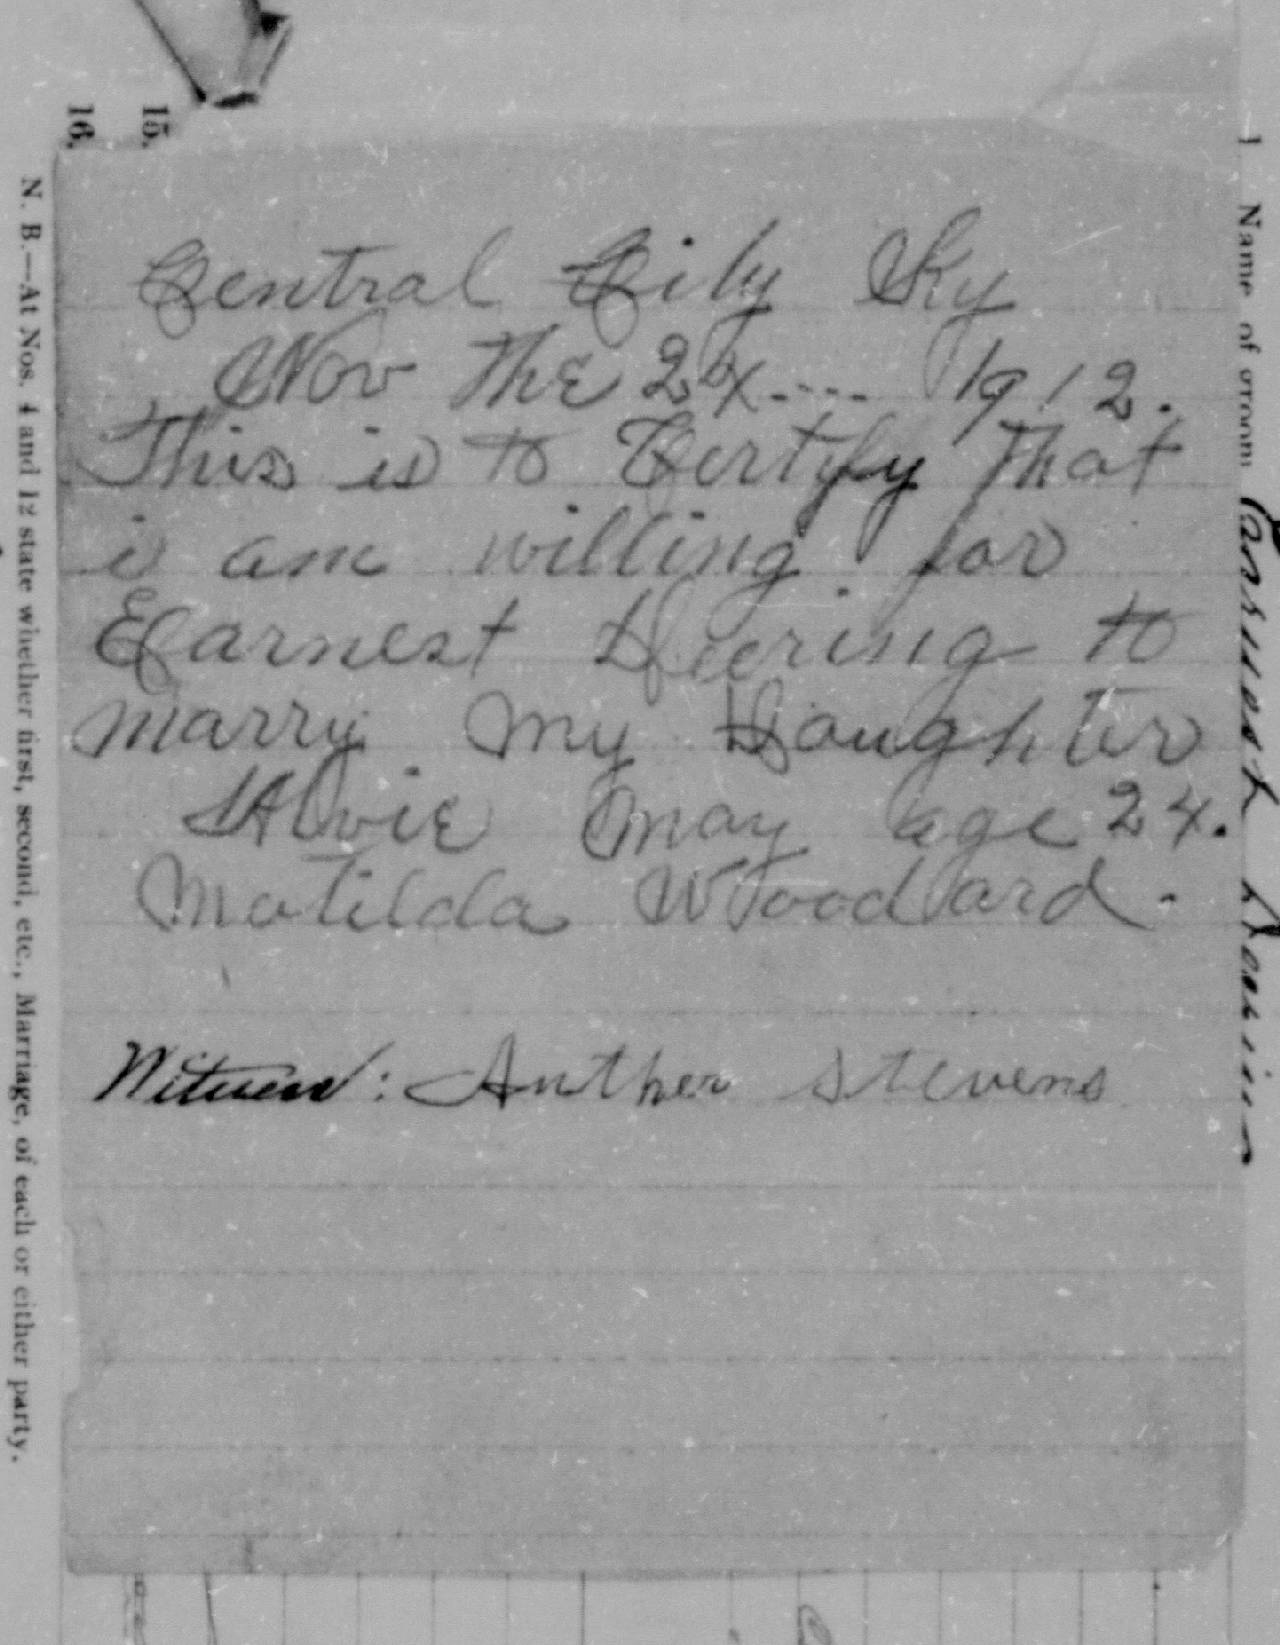 Central City Ky
Nov the 24.... 1912.
This is to Certify that
i am willing for
Earnest Deering to
marry my Daughter
Alvie may age 24.
Matilda Woodard.
Witness: Anther Stevens
15.
16.
N. B.—At Nos. 4 and 12 state whether first, second, etc., Marriage, of each or either party.
1 Name of groom Earnest